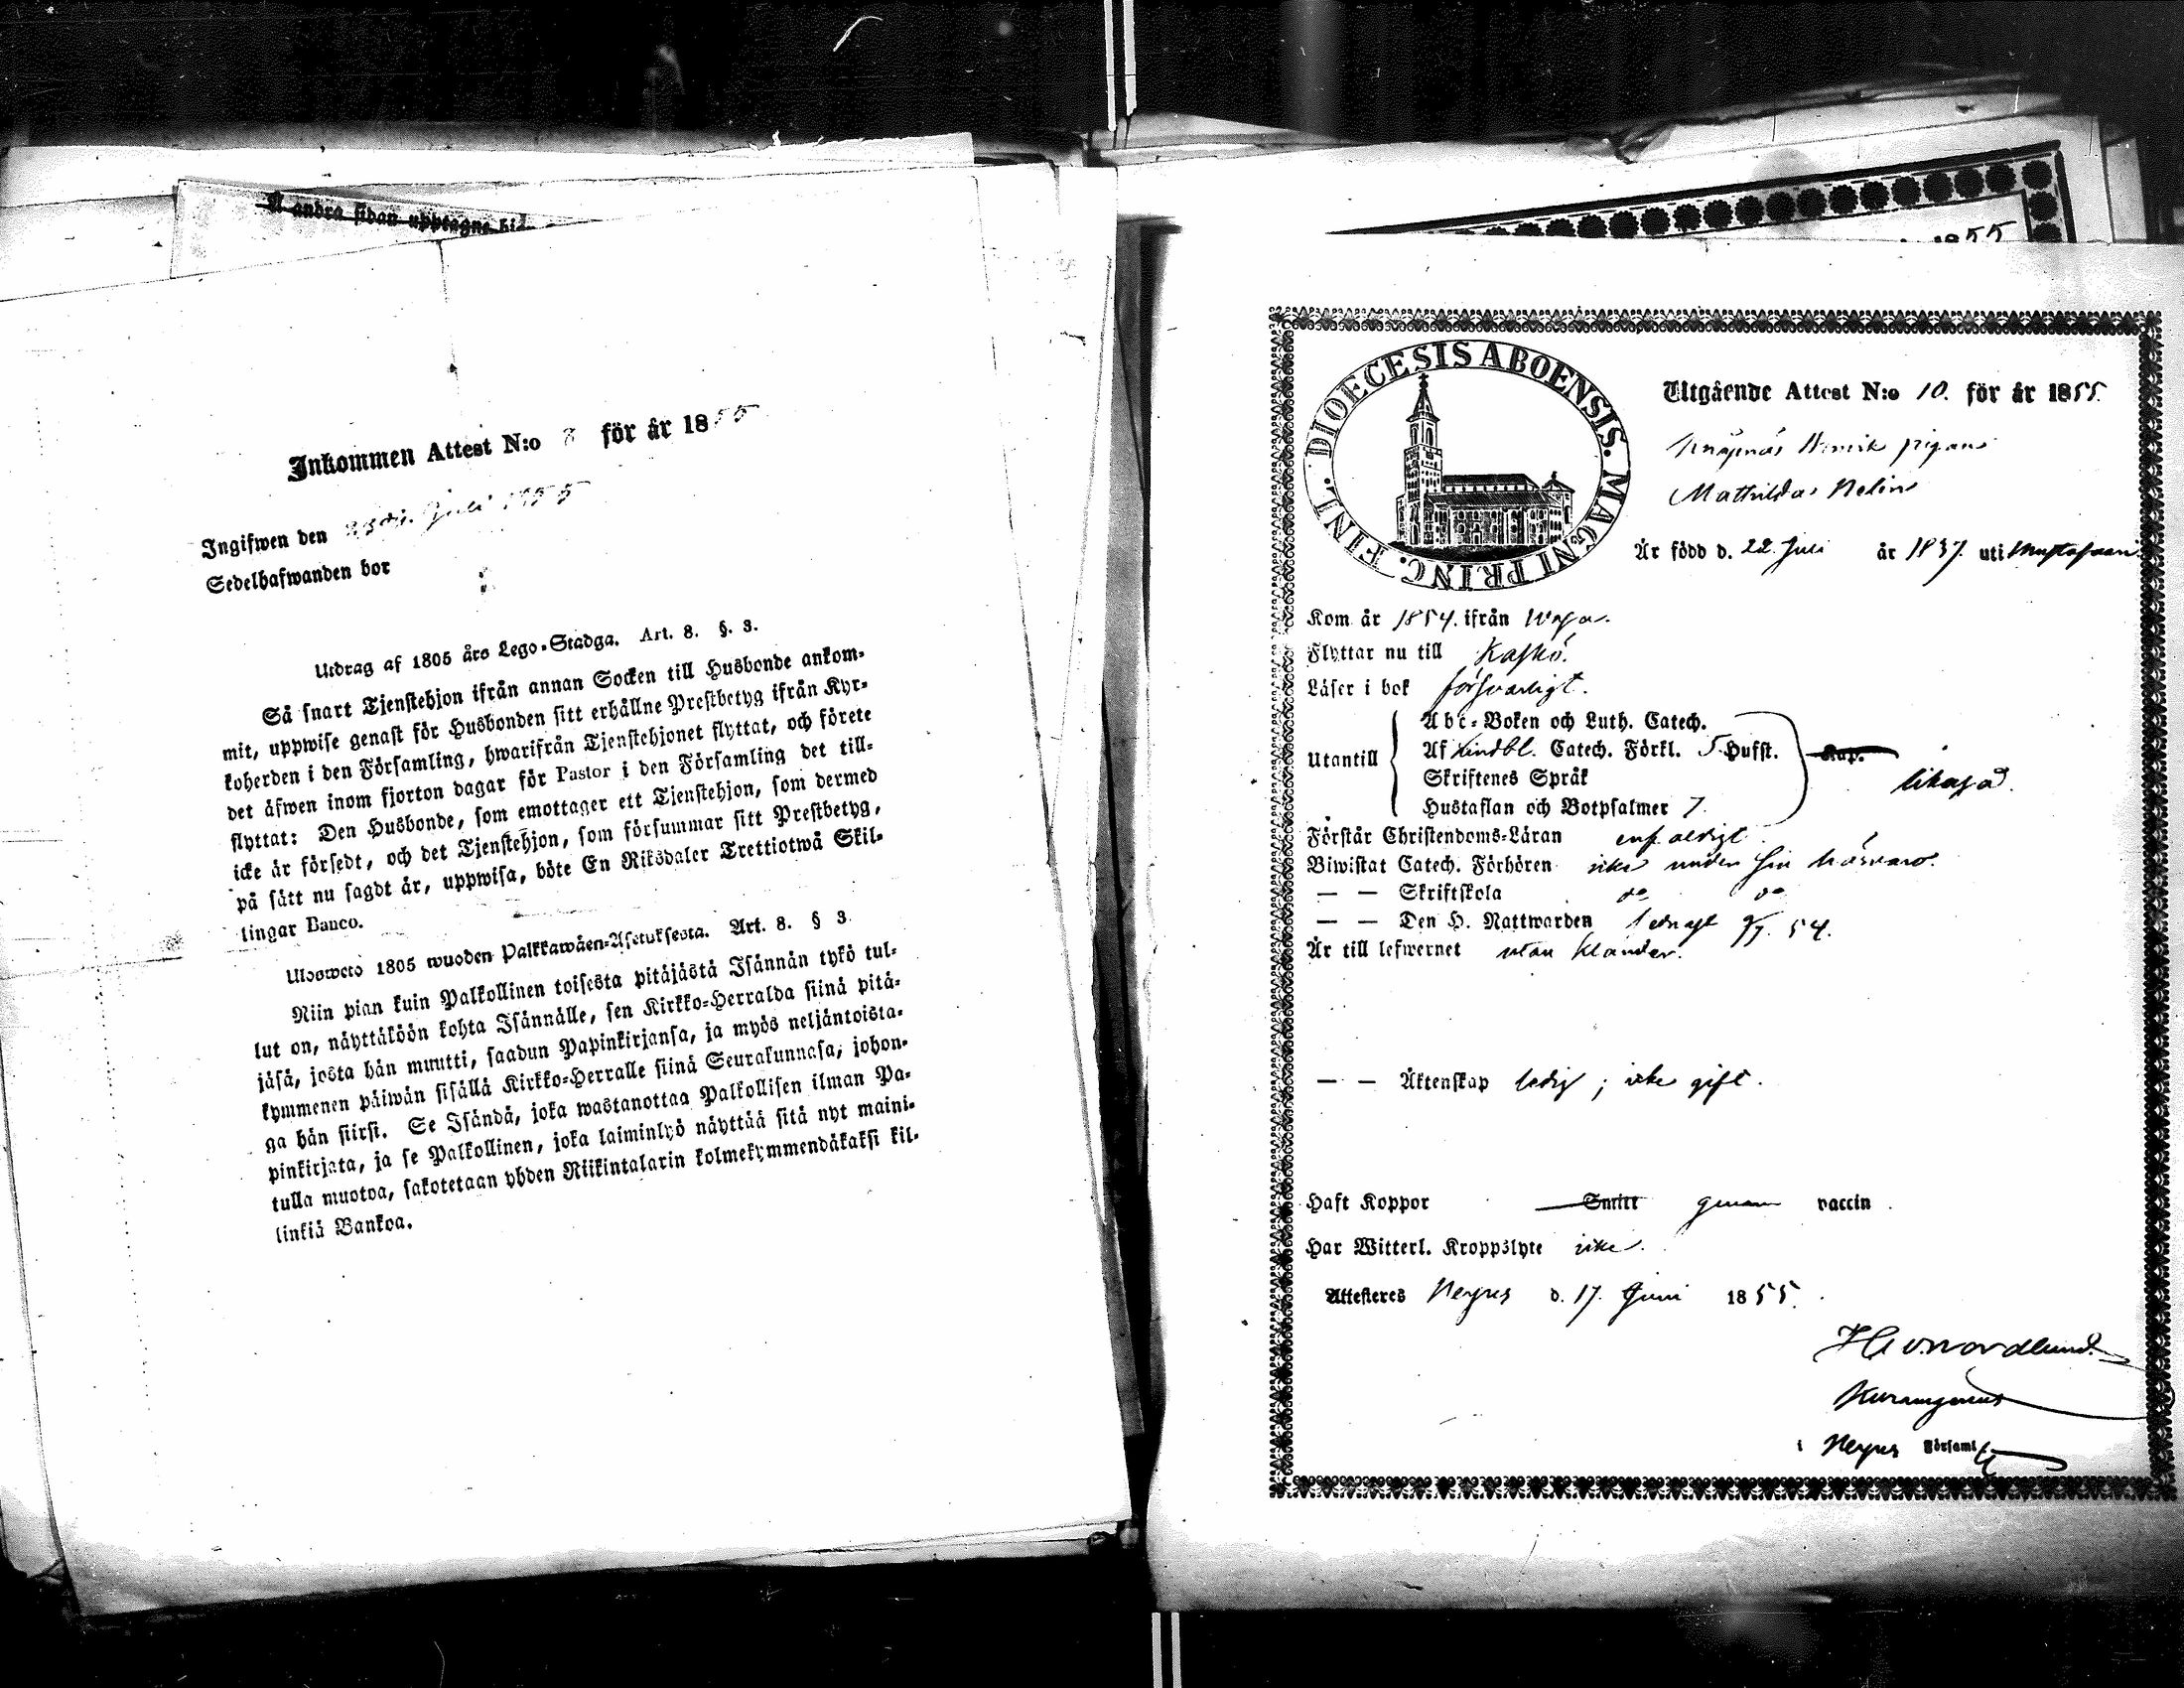 Å andra sidan upptagne
Inkommen Attest N:o 8 för år 1855
Ingifwen den Juli 1855
Sedelhafwanden bor
Utdrag af 1805 års Lego-Stadga. Art. 8. §. 3.
Så snart Tjenstehjon ifrån annan Socken till Husbonde ankom-
mit, uppwise genast för Husbonden sitt erhållne Prestbetyg ifrån Kyr-
koherden i den Församling, hwarifrån Tjenstehjonet flyttat, och förete
det äfwen inom fjorton dagar för Pastor i den Församling det till-
flyttat: Den Husbonde, som emottager ett Tjenstehjon, som dermed
icke är försedt, och det Tjenstehjon, som försummar sitt Prestbetyg,
på sätt nu sagdt är, uppwisa, böte En Riksdaler Trettiotwå Skil-
lingar Banco.
Ulosweto 1805 wuoden Palkkawäen-Asetuksesta. Art. 8. § 3.
Niin pian kuin Palkollinen toisesta pitäjästä Isännän tykö tul-
lut on, näyttäköön kohta Isännälle, sen Kirkko-Herralda siinä pitä-
jäsä, josta hän muutti, saadun Papinkirjansa, ja myös neljäntoista-
kymmenen päiwän sisällä Kirkko-Herralle siinä Seurakunnasa, johon-
ga hän siirsi. Se Isändä, joka wastanottaa Palkollisen ilman Pa-
pinkirjata, ja se Palkollinen, joka laiminlyö näyttää sitä nyt maini-
tulla muotoa, sakotetaan yhden Riikintalarin kolmekymmendäkaksi kil-
linkiä Bankoa.
1855
DIOECESIS ABOENSIS. MAGNI PRINC. FINL.
Utgående Attest N:o 10. för år 1855.
Henrik pigan
Mathilda Nelin
Är född d. 22 Juli år 1837. uti
Kom år 1854. ifrån Wasa.
Flyttar nu till Kaskö.
Läser i bok försvarligt.
Utantill
Abc-Boken och Luth. Catech.
Af Lindbl. Catech. Förkl. 5 Hufst. Kap.
Skriftenes Språk
likaså.
Hustaflan och Botpsalmer 7.
Förstår Christendoms-Läran enfaldigt.
Biwistat Catech. Förhören icke under sin härvaro.
— — Skriftskola do do
— — Den H. Nattwarden 54.
Är till lefwernet utan klander.
— — Äktenskap ledig; icke gift.
Haft Koppor Smitt genom vaccin
Har Witterl. Kroppslyte icke.
Attesteres Nerpes d. 17. Juni 1855.
Nordlund
i Nerpes Församl